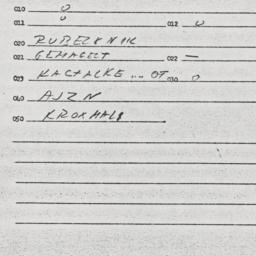 010 0
011 0 012 0
020 RUBELKNIK
021 GEMAGELT 022 —
023 KACHALKE ... OT 030 0
040 AJZN
050 KROKHALI